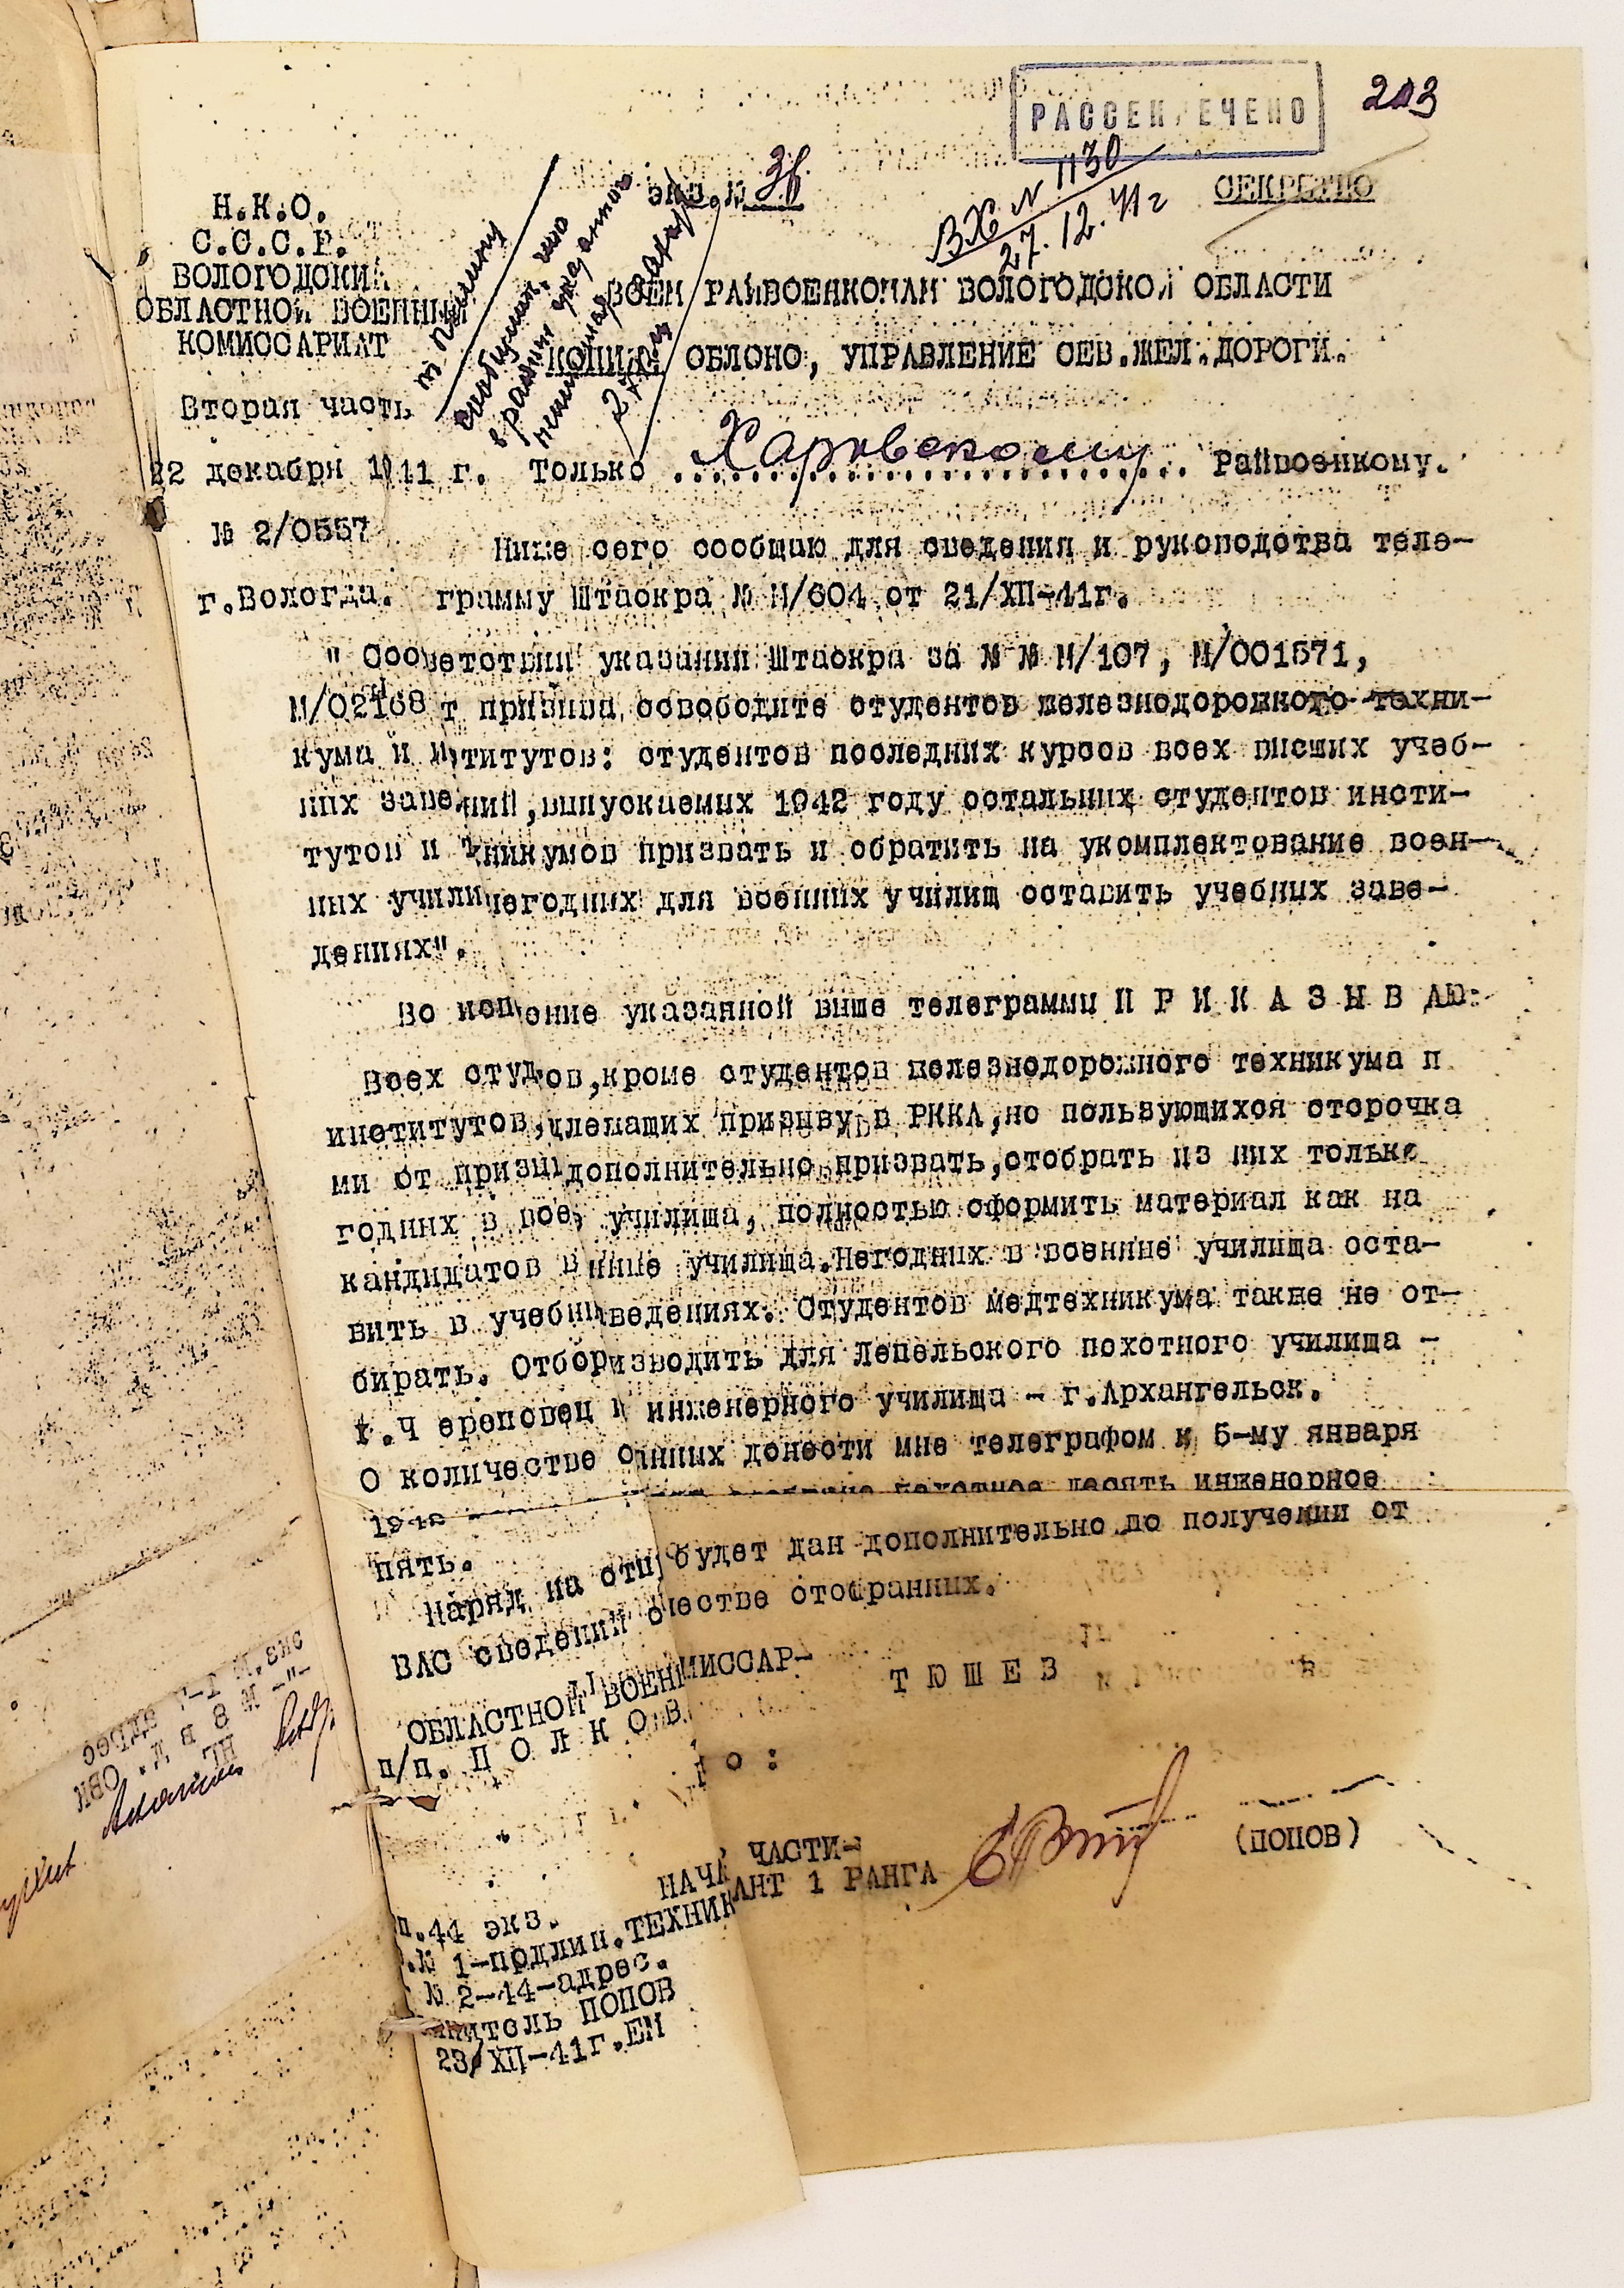 РАССЕКРЕЧЕНО
203
экз.№ 38
ВХ N 1130
27.12.41 г
СЕКРЕТНО
Н.К.О.
С.С.С.Р.
ВОЛОГОДСКИЙ
ОБЛАСТНОЙ ВОЕННЫЙ
КОМИССАРИАТ
Вторая часть
22 декабря 1941 г.
№ 2/0557
г.Вологда.
ВСЕМ РАЙВОЕНКОМАМ ВОЛОГОДСКОЙ ОБЛАСТИ
КОПИЯ: ОБЛОНО, УПРАВЛЕНИЕ СЕВ.ЖЕЛ.ДОРОГИ.
Только Харовскому Райвоенкому.
Ниже сего сообщаю для сведения и руководства теле-
грамму Штаокра № М/604 от 21/XII-41г.
" Соответствии указаний Штаокра за № № М/107, М/001571,
М/02168 т призыва освободите студентов железнодорожного техни-
кума и титутов: студентов последних курсов всех высших учеб-
ных заве ний,выпускаемых 1942 году остальных студентов инсти-
тутов и никумов призвать и обратить на укомплектование воен-
ных учили негодных для военных училищ оставить учебных заве-
дениях".
Во исп ение указанной выше телеграммы П Р И К А З Ы В АЮ:
Всех студ ов,кроме студентов железнодорожного техникума и
институтов, длежащих призыву в РККА,но пользующихся отсрочка
ми от призы дополнительно призвать,отобрать из них только
годных в вое училища, полностью оформить материал как на
кандидатов в нные училища.Негодных в военные училища оста-
вить в учебны ведениях. Студентов медтехникума также не от-
бирать. Отбор изводить для Лепельского пехотного училища -
г.Ч ереповец и инженерного училища - г.Архангельск.
О количестве о анных донести мне телеграфом к 5-му января
пехотное десять инженерное
пять.
Наряд на отп будет дан дополнительно по получении от
ВАС сведений о честве отобранных.
ОБЛАСТНОЙ ВОЕН МИССАР-
п/п. П О Л К О В Т Ю Ш Е В
о :
НАЧА ЧАСТИ-
ТЕХНИК АНТ 1 РАНГА (ПОПОВ)
п.44 экз.
.№ 1-подлин.
№ 2-44-адрес.
итель ПОПОВ
23/XII-41г.ЕМ